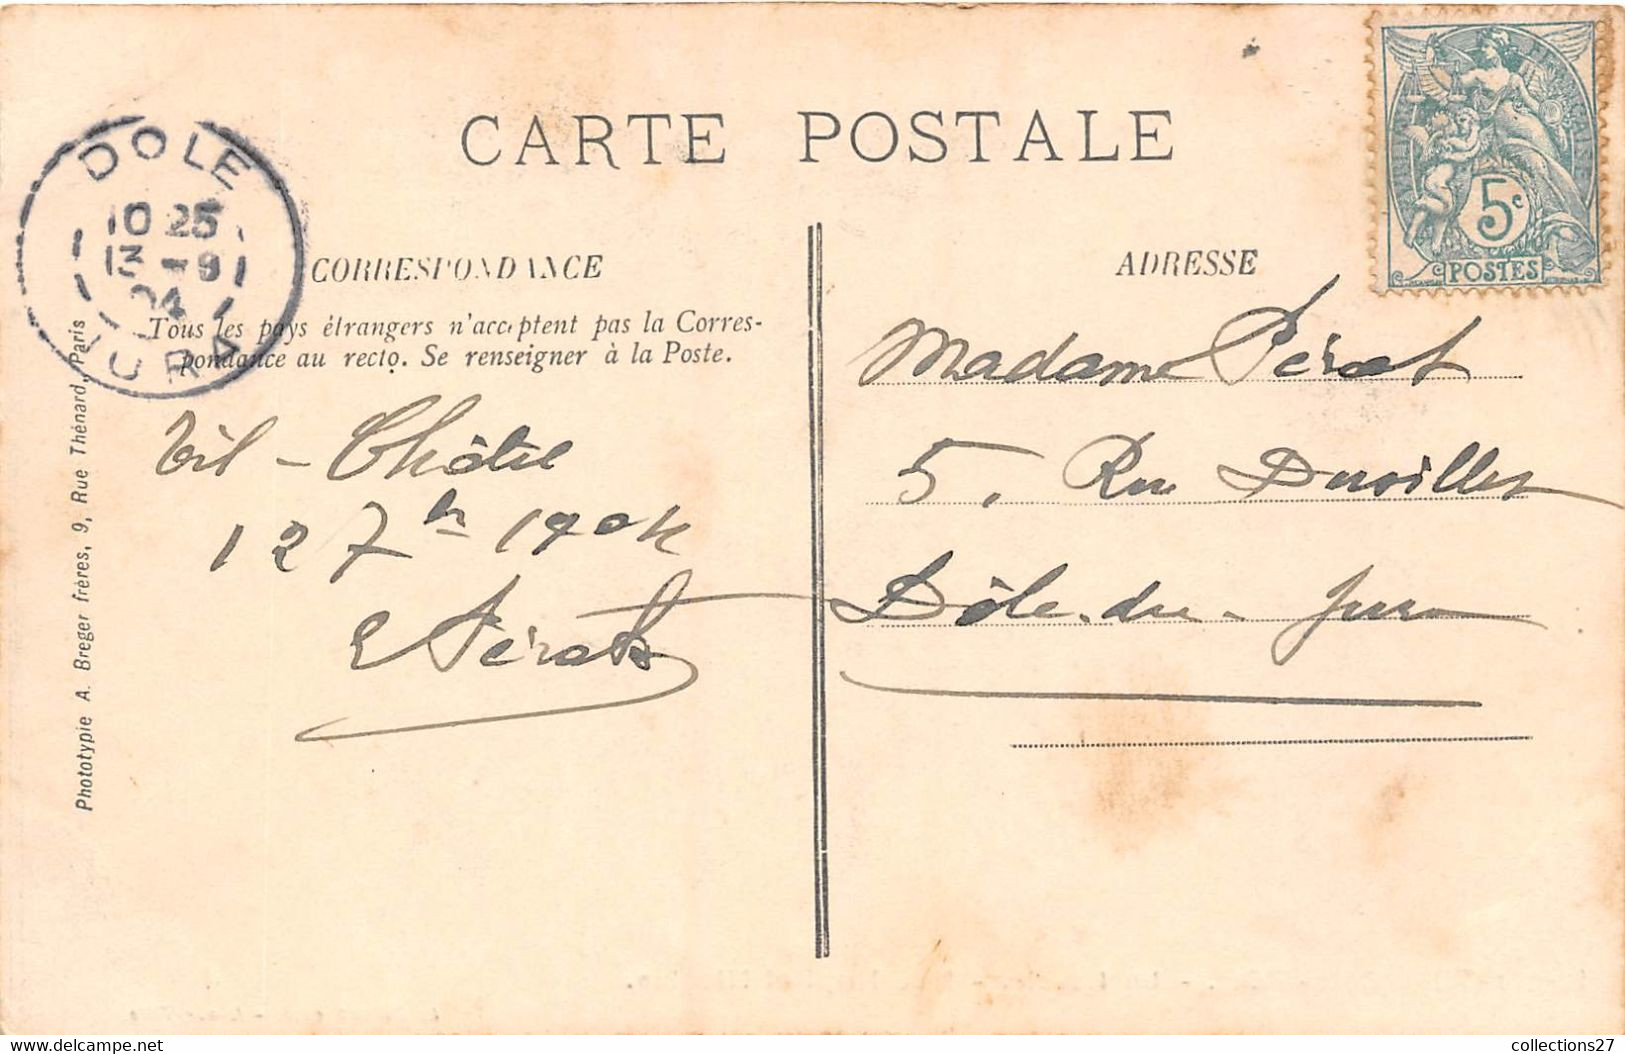 CARTE POSTALE
DOLE
10 25
13 - 9
04
JURA
CORRESPONDANCE
Tous les pays étrangers n'acceptent pas la Corres-
pondance au recto. Se renseigner à la Poste.
Til-Châtel
12 7bre 1904
Pérat
Phototypie A. Breger frères, 9, Rue Thénard, Paris
ADRESSE
Madame Pérat
5, Rue
Dôle-du-Jura
5c
POSTES
collections27